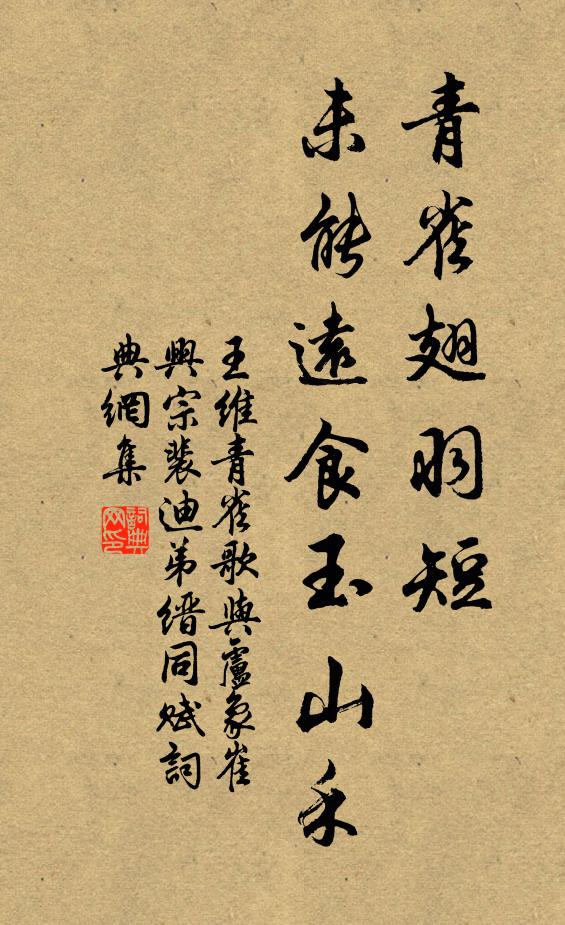 青雀翅羽短
未能遠食玉山禾
王維青雀歌與盧象崔
興宗裴迪弟缙同赋詞
典網集
詞典网印